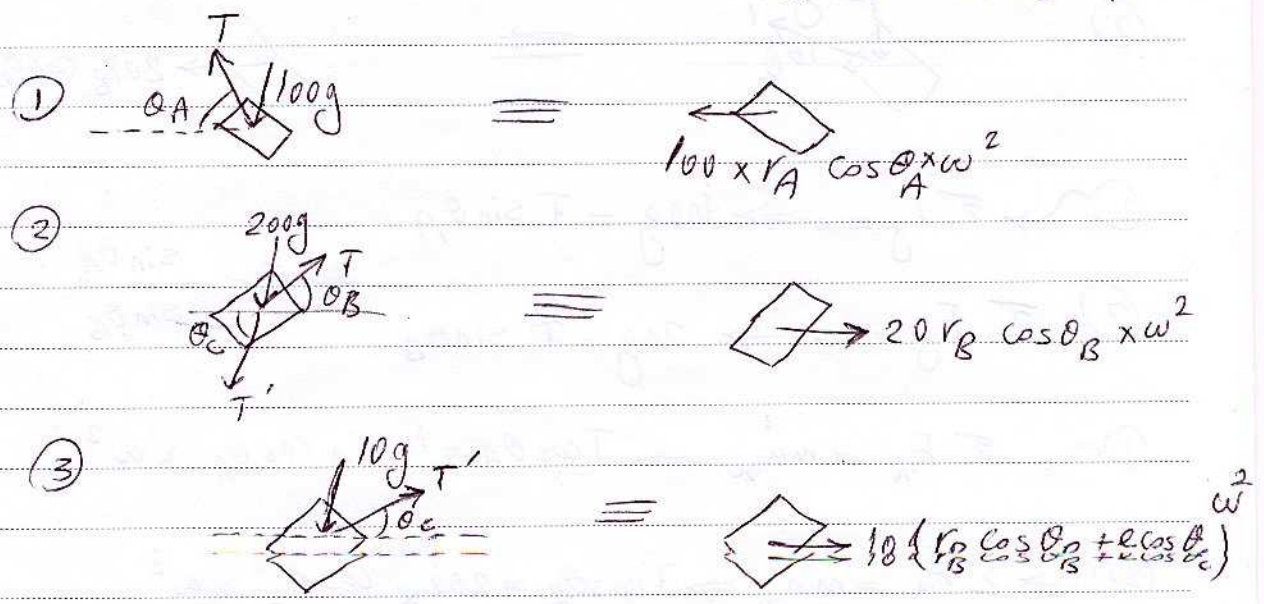 T
① θA 100g ≡ 100 × rA cos θA × ω²
② 200g T θB θc T' ≡ 20 rB cos θB × ω²
③ 10g T' θc ≡ 10 (rB cos θB + l cos θc) ω²